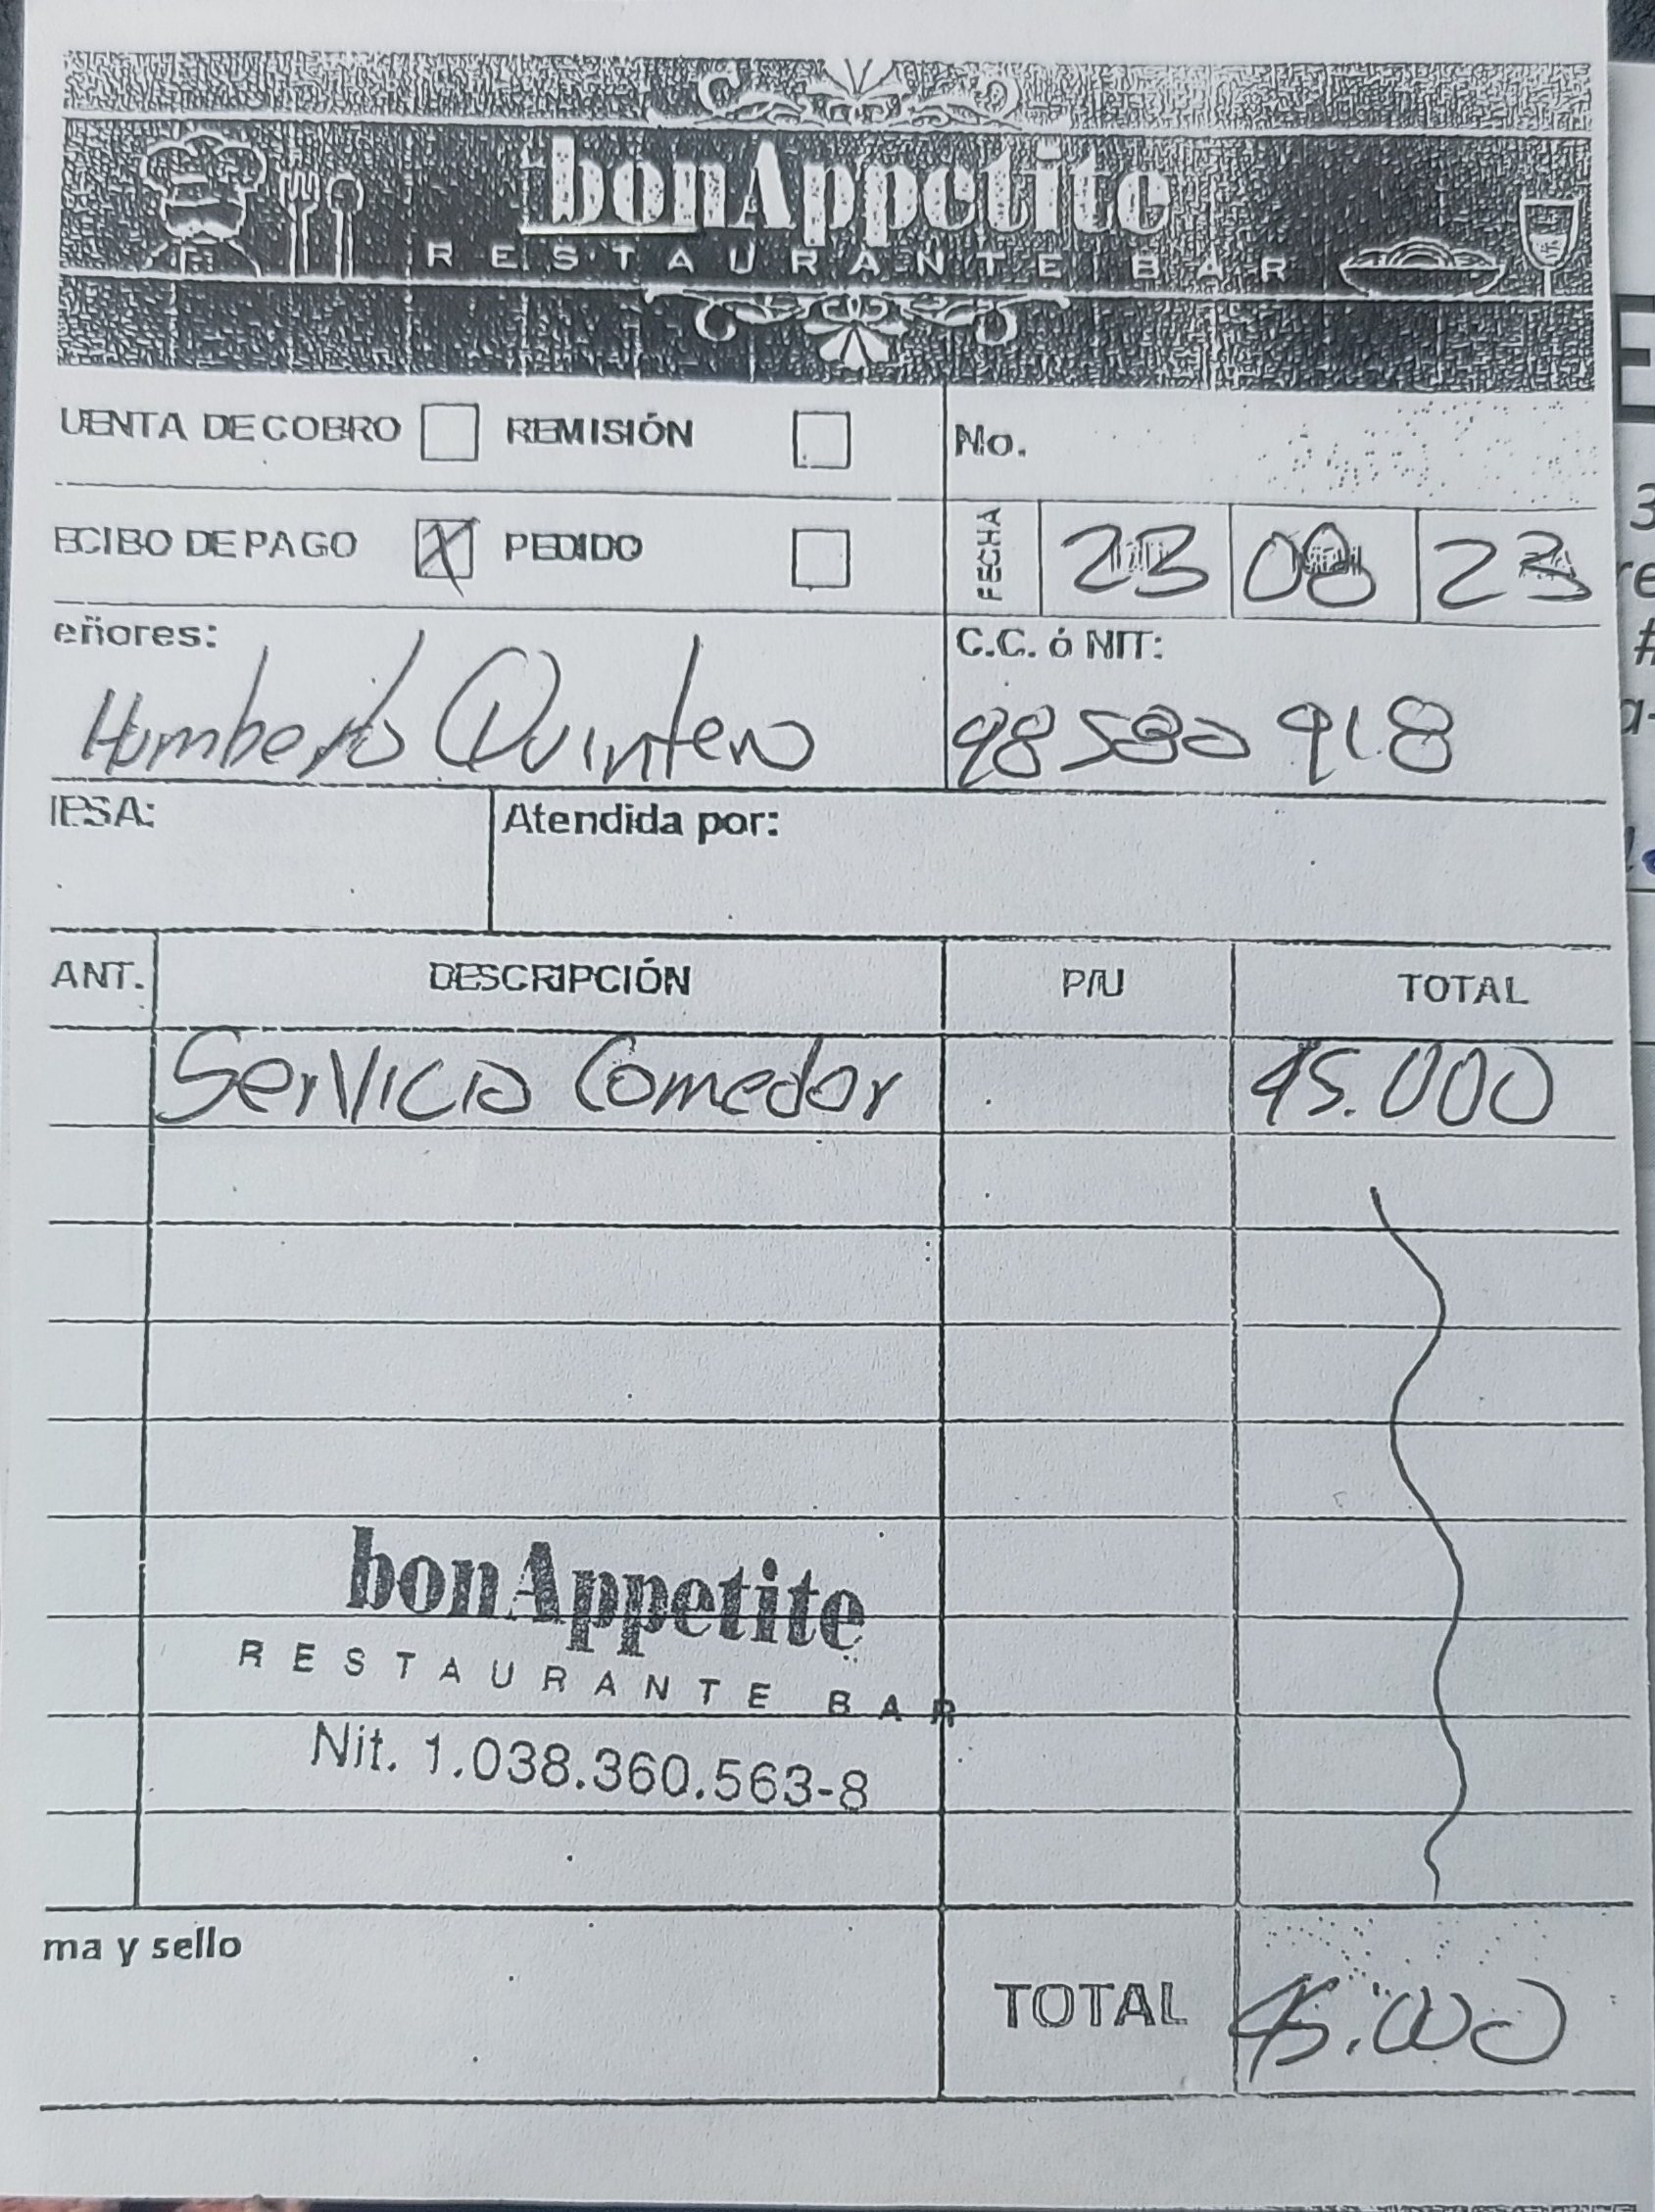 bonAppetite
RESTAURANTE BAR
UENTA DE COBRO REMISIÓN No.
ECIBO DE PAGO X PEDIDO FECHA 23 08 23
eñores: C.C. ó NIT:
Humberto Quintero 98580918
IESA: Atendida por:
ANT. DESCRIPCIÓN P/U TOTAL
Servicio Comedor 45.000
bonAppetite
RESTAURANTE BAR
Nit. 1.038.360.563-8
ma y sello
TOTAL 45.000